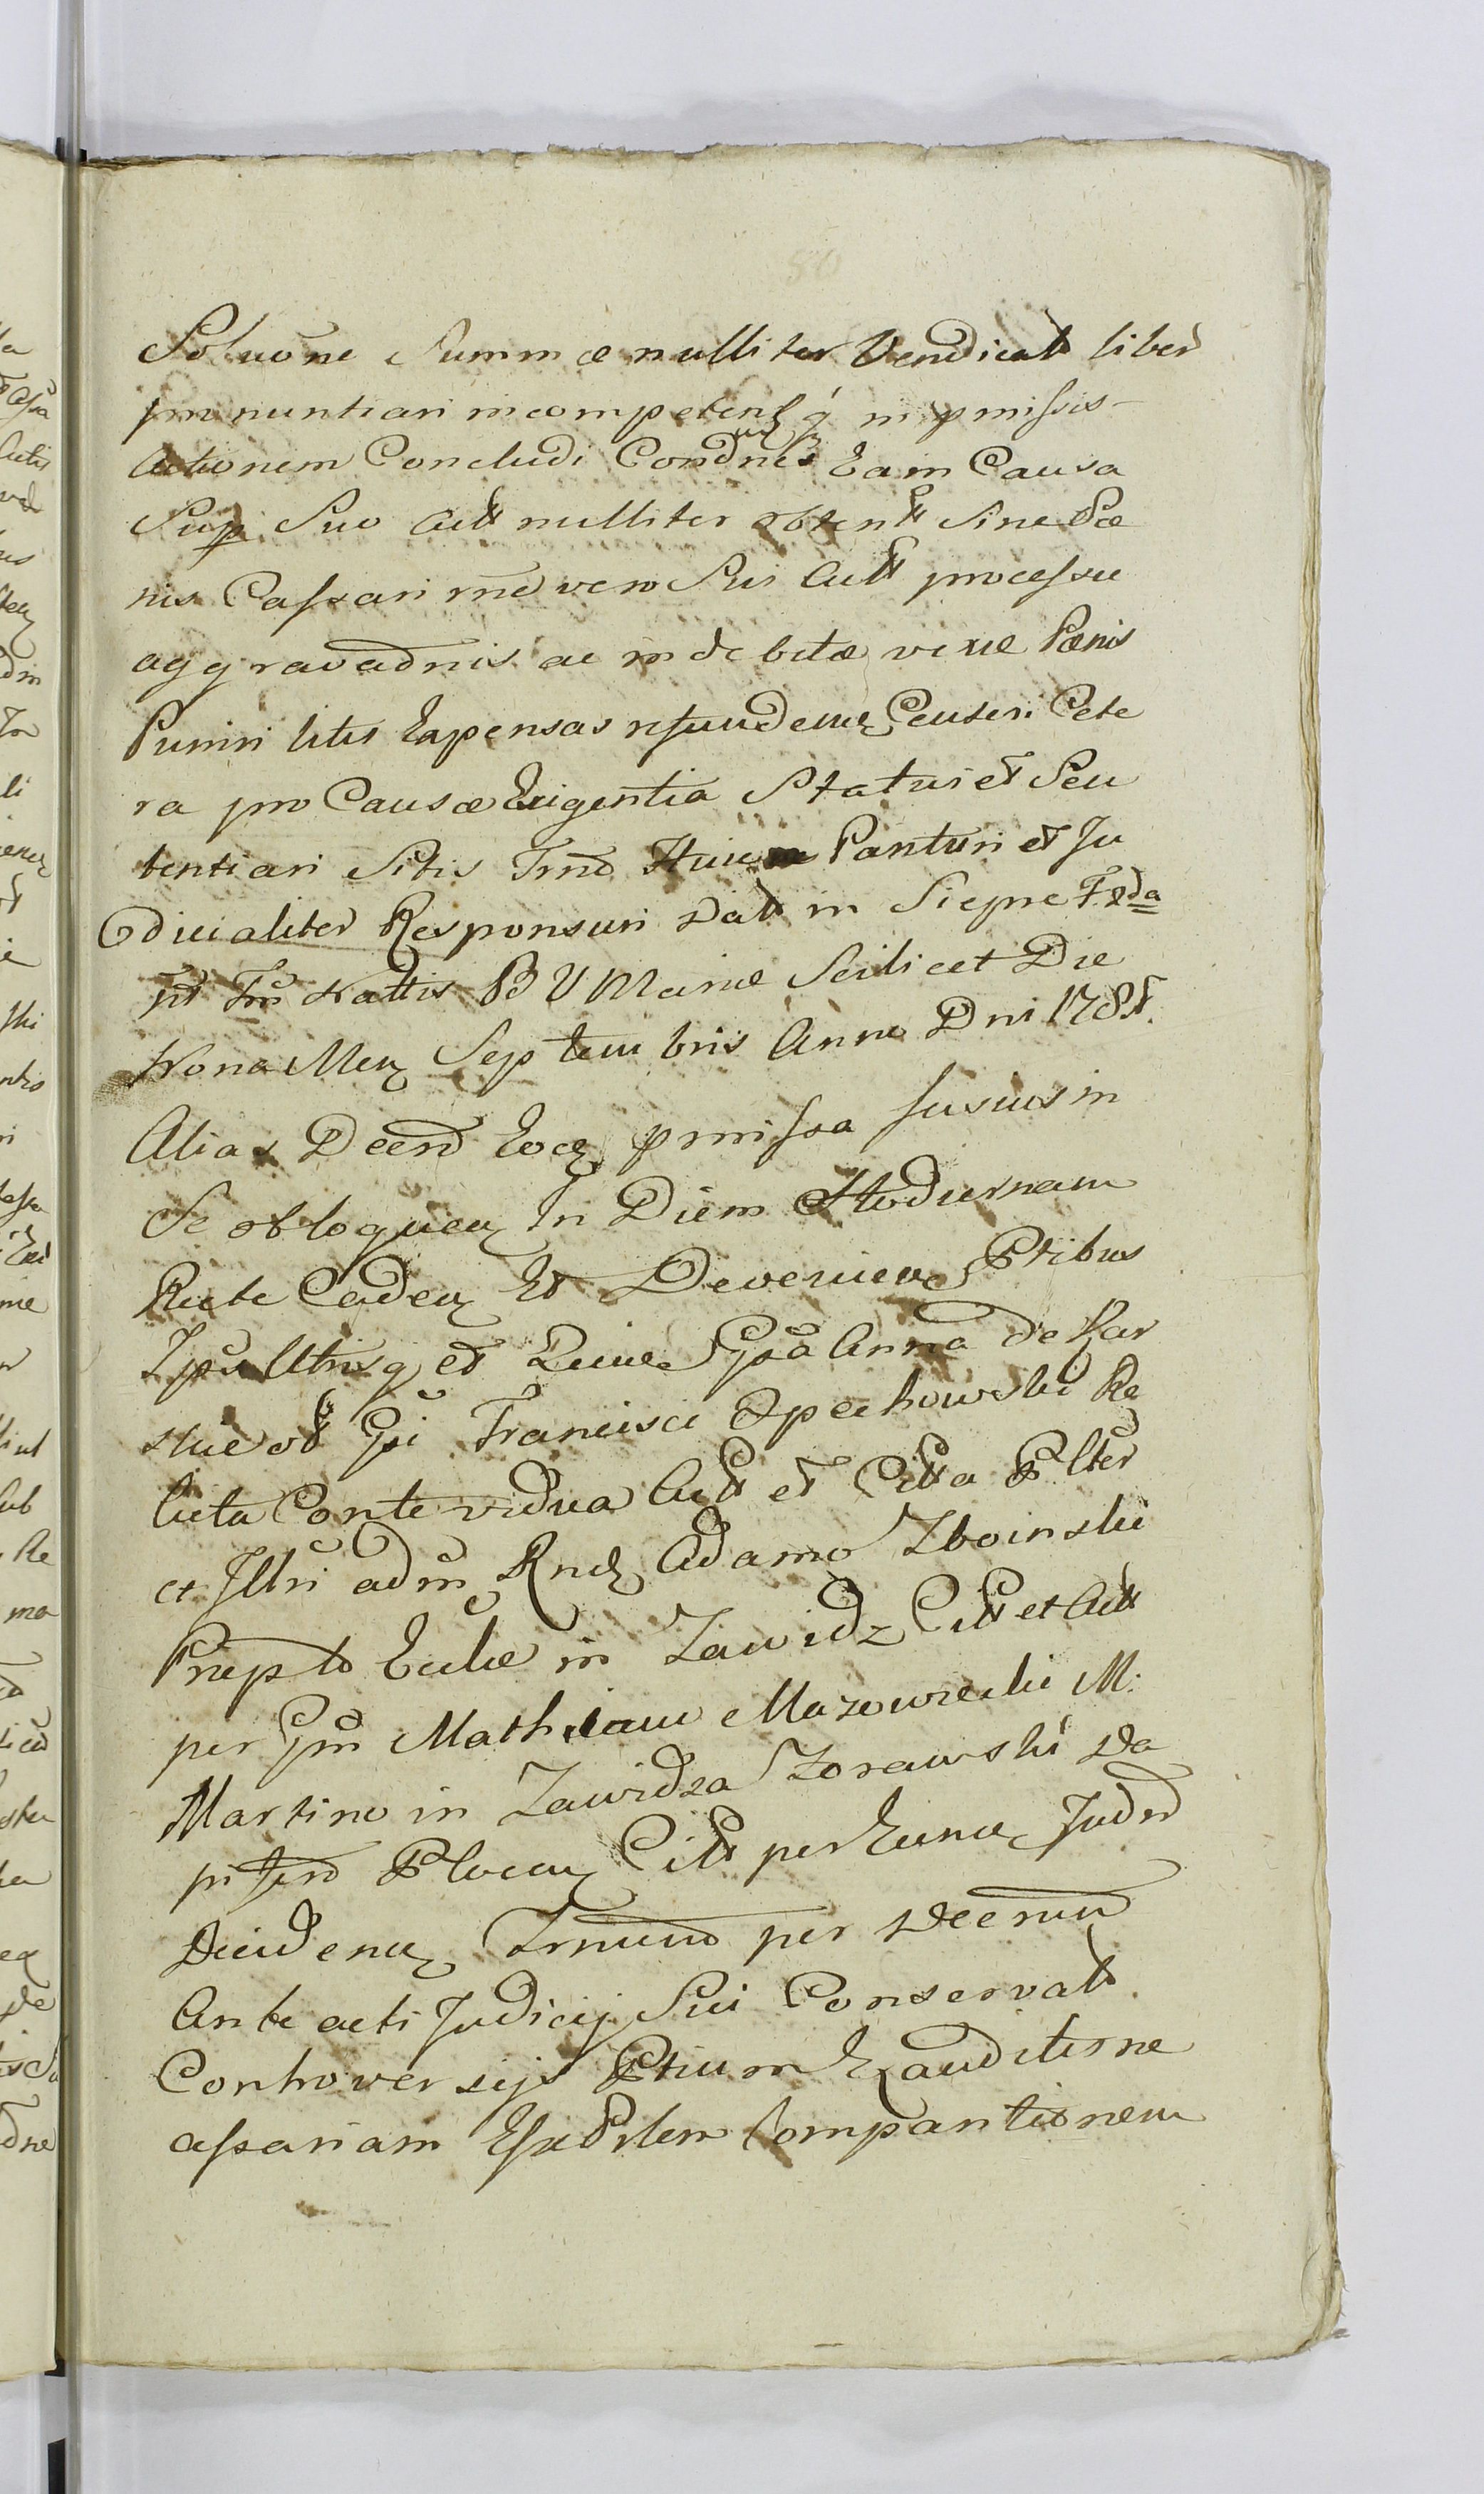 50
Soluõne Summæ nulliter Vendicatt liber
pronuntiari incompetenq q́ in pmissis
Actionem Concludi Condnes Eam Causa
Sup Suo Actt nulliter obtentt Sine Pœ
nis Cassari rñe vero Sui Actt processu
aggravadnis ac indebitæ vexæ Pœnis
Puniri litis Expensas refundeneq Censeri Cete
ra pro Causæ Exigentia Statui et Sen
tentiari Sitis Trnõ Huic Parituri et Ju
dicialiter Responsuri Datt in Sierpc F. 2da
pt Fm Nattis B V Mariæ Scilicet Die
Nona Meq Septembris Anno Dni 178
Alias Decrd Eocq pmissa fusius in
Se obloqueq In Diem Hodiernam
Recte Cadeq Et Devenieq Ptibus
Ipis Utrisq et quive Gsa Anna de Kar
skie olt Gsi Francisci Opechowski Re
licta Conte vidua Actt et Citta Plter
et Illri adm Rndq Adamo Zboinski
Præpto Ecclæ in Zawidz Citt et Actt
per Gsm Mathiam Mazowiecki M.
Martino in Zawidza Zorawski Da
pifero Plocenq Citt per Eunq Judm
Decideneq Trnum per Decrum
Ante acti Judicij Sui Conservatt
Controversijs Ptium Exauditis ne
cessariam Esse Ptem Comparitionem